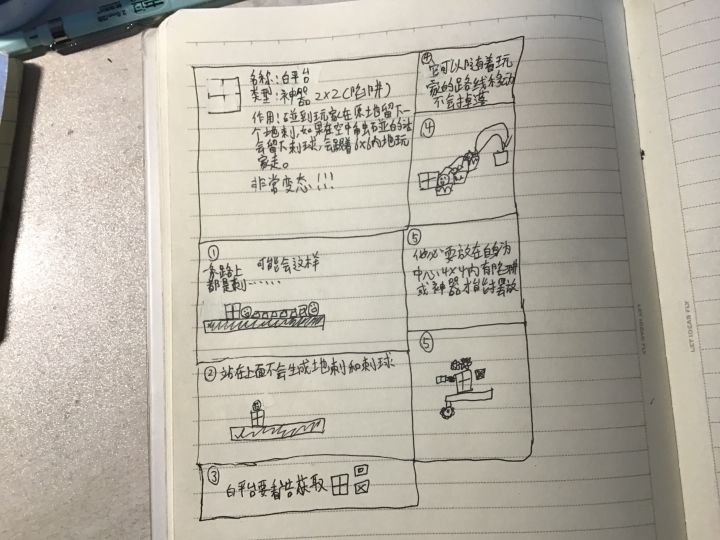 名称:白平台
类型:神器 2×2(陷阱)
作用:碰到玩家,在原地留下一
个地刺,如果在空中
会留下刺球,会跟着6×6内地玩
家走。
非常变态!!!
①
可能会这样
一条路上
都是刺······
② 站在上面不会生成土地刺和刺球
③
白平台要看告获取
④
它可以随着玩
家的路线移动
不会掉落
④
⑤
他必要放在自身为
中心4×4内有陷阱
或神器才能摆放
⑤
LET IDEAS FLY
LET IDEAS FLY